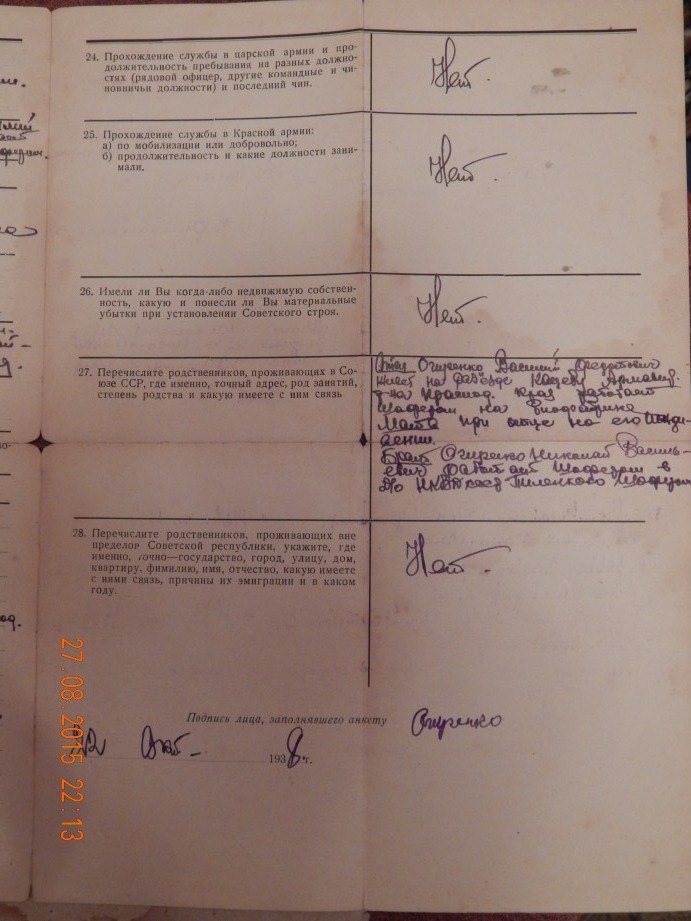 24. Прохождение службы в царской армии и про-
должительность пребывания на разных должно-
стях (рядовой офицер, другие командные и чи-
новничьи должности) и последний чин.
Нет.
25. Прохождение службы в Красной армии:
а) по мобилизации или добровольно;
б) продолжительность и какие должности зани-
мали.
Нет.
26. Имели ли Вы когда-либо недвижимую собствен-
ность, какую и понесли ли Вы материальные
убытки при установлении Советского строя.
Нет.
27. Перечислите родственников, проживающих в Со-
юзе ССР, где именно, точный адрес, род занятий,
степень родства и какую имеете с ним связь
Отец Огиренко Василий
живет на раз'езде Армавир.
р-на Краснод. Края работает
Шофером на
Мать при отце на его ижди-
вении.
Брат Огиренко Николай Василь-
евич работает Шофером в
НКВД Шофером
28. Перечислите родственников, проживающих вне
пределов Советской республики, укажите, где
именно, точно—государство, город, улицу, дом,
квартиру, фимилию, имя, отчество, какую имеете
с ними связь, причины их эмиграции и в каком
году.
Нет.
Подпись лица, заполнявшего анкету
Огиренко
1938 г.
27.08.2015 22:13